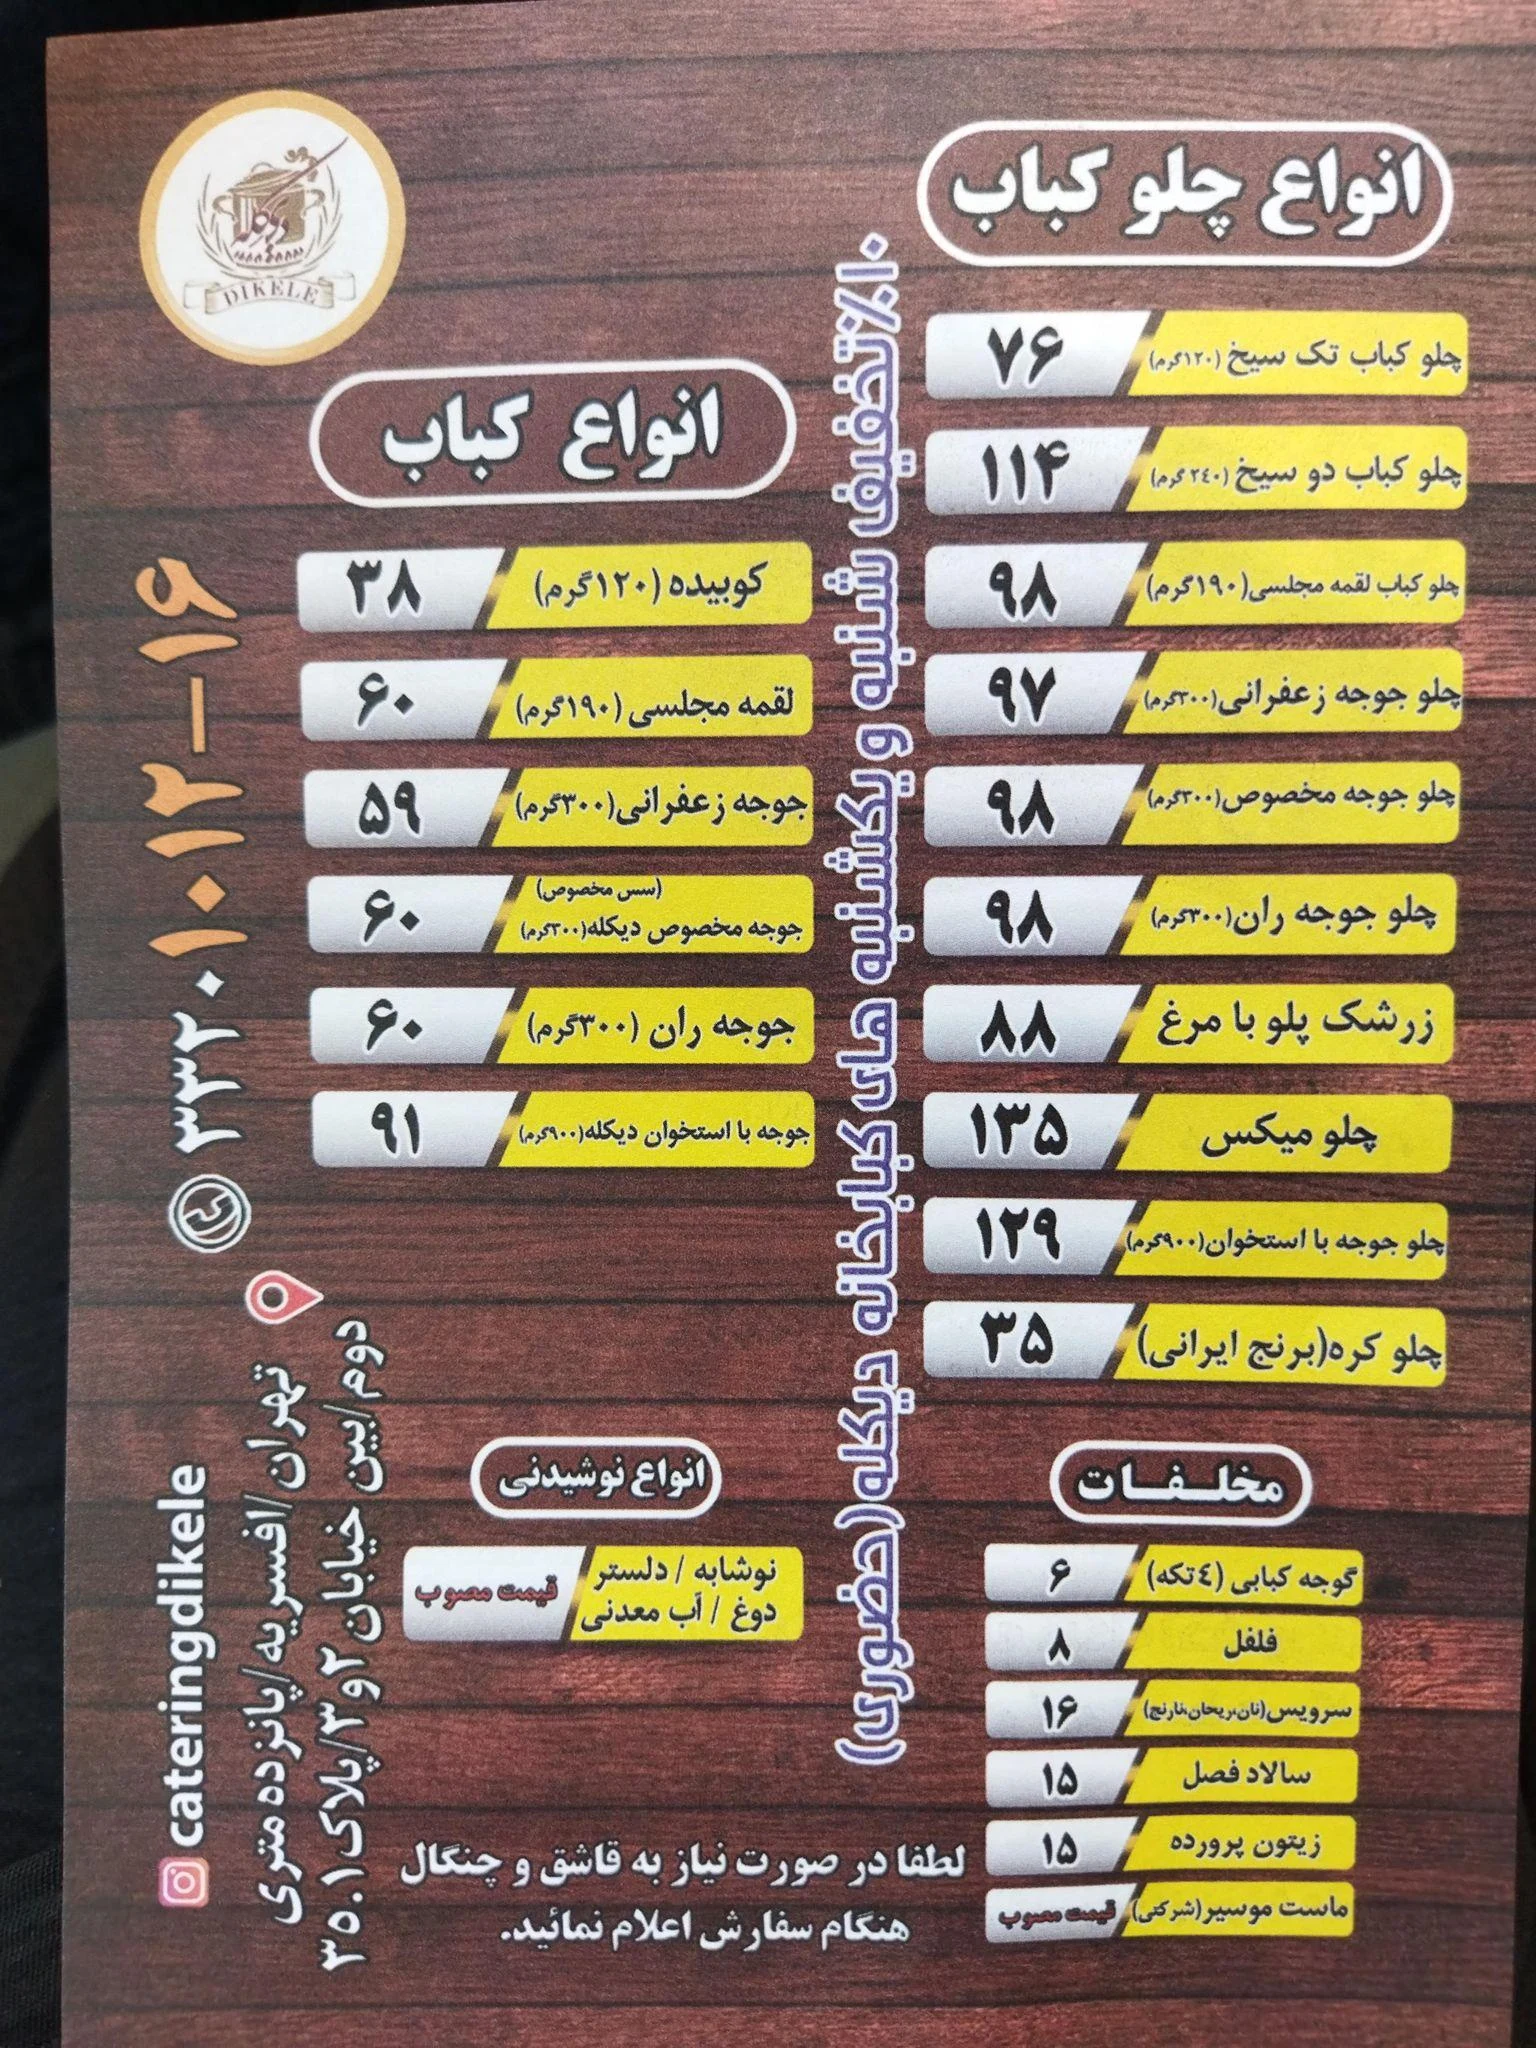 انواع چلو کباب
چلو کباب تک سیخ (۱۲۰گرم) ۷۶
چلو کباب دو سیخ (۲٤۰ گرم) ۱۱۴
چلو کباب لقمه مجلسی(۱۹۰گرم) ۹۸
چلو جوجه زعفرانی(۳۰۰گرم) ۹۷
چلو جوجه مخصوص(۳۰۰گرم) ۹۸
چلو جوجه ران(۳۰۰گرم) ۹۸
زرشک پلو با مرغ ۸۸
چلو میکس ۱۳۵
چلو جوجه با استخوان(۹۰۰گرم) ۱۲۹
چلو کره(برنج ایرانی) ۳۵
مخلفات
گوجه کبابی (٤تکه) ۶
فلفل ۸
سرویس(نان،ریحان،نارنج) ۱۶
سالاد فصل ۱۵
زیتون پرورده ۱۵
ماست موسیر(شرکتی) قیمت مصوب
۱۰٪تخفیف شنبه و یکشنبه های کبابخانه دیکله(حضوری)
دیکله
DIKELE
انواع کباب
کوبیده (۱۲۰گرم) ۳۸
لقمه مجلسی (۱۹۰گرم) ۶۰
جوجه زعفرانی(۳۰۰گرم) ۵۹
(سس مخصوص)
جوجه مخصوص دیکله(۳۰۰گرم) ۶۰
جوجه ران (۳۰۰گرم) ۶۰
جوجه با استخوان دیکله(۹۰۰گرم) ۹۱
انواع نوشیدنی
نوشابه / دلستر
دوغ / آب معدنی
قیمت مصوب
لطفا در صورت نیاز به قاشق و چنگال
هنگام سفارش اعلام نمائید.
۳۳۲۰۱۰۱۲-۱۶
تهران/افسریه/پانزده متری
دوم/بین خیابان ۲و۳/پلاک۳۵۰۱
cateringdikele